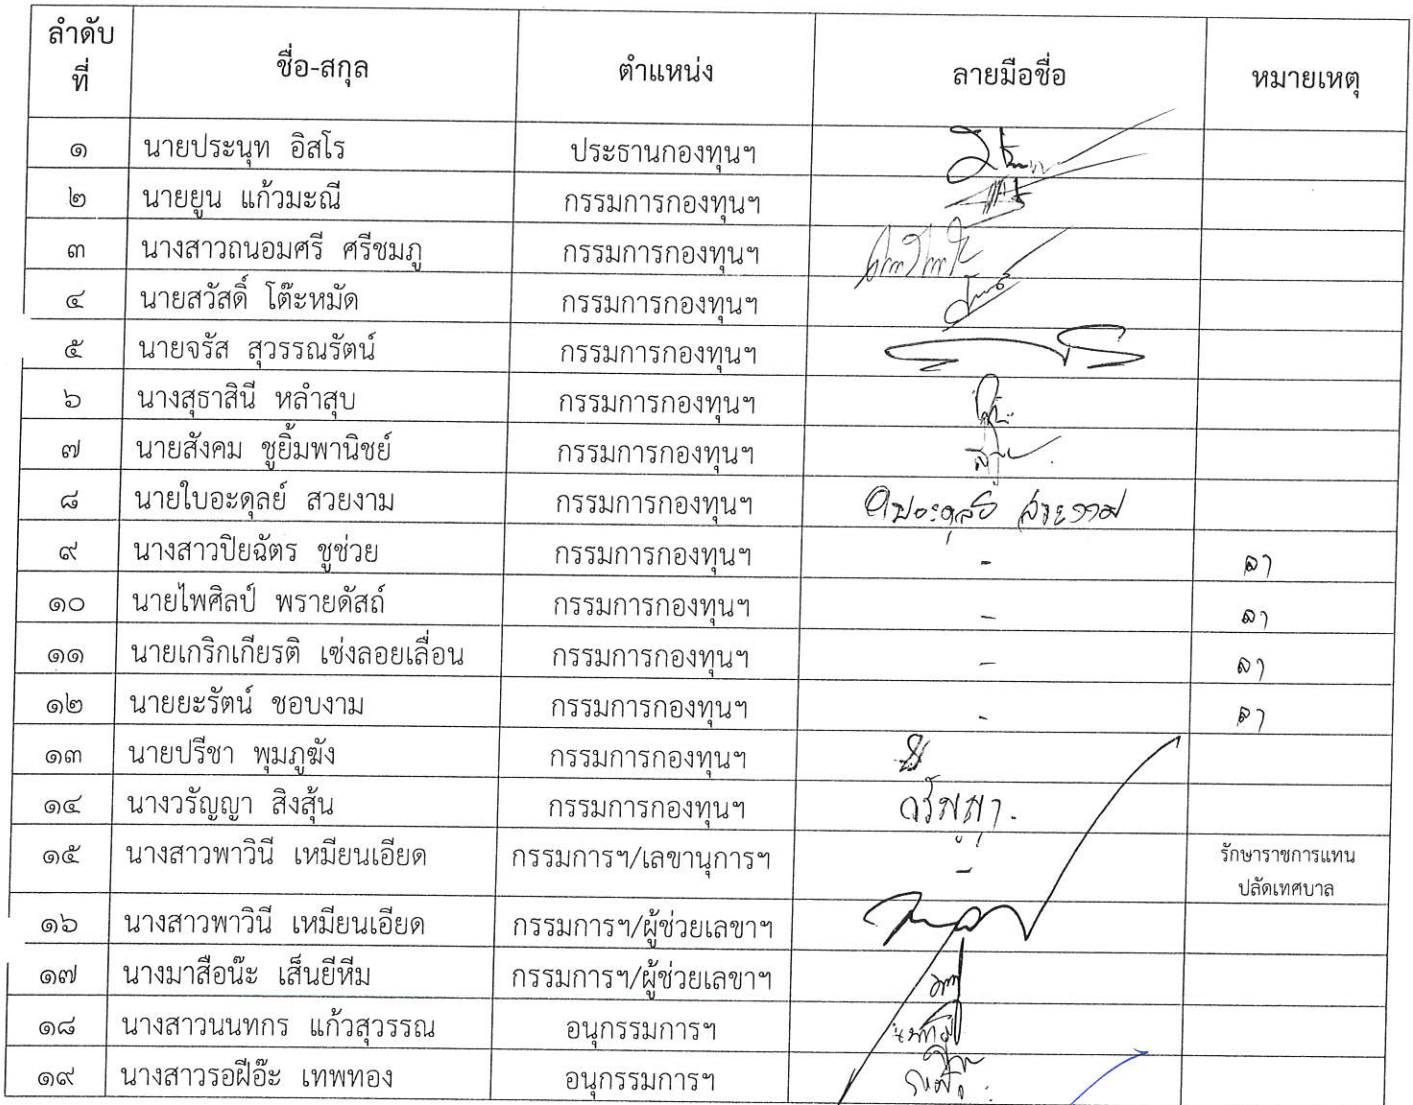 ลำดับที่ ชื่อ-สกุล ตำแหน่ง ลายมือชื่อ หมายเหตุ
๑ นายประนุท อิสโร ประธานกองทุนฯ
๒ นายยูน แก้วมะณี กรรมการกองทุนฯ
๓ นางสาวถนอมศรี ศรีชมภู กรรมการกองทุนฯ
๔ นายสวัสดิ์ โต๊ะหมัด กรรมการกองทุนฯ
๕ นายจรัส สุวรรณรัตน์ กรรมการกองทุนฯ
๖ นางสุธาสินี หลำสุบ กรรมการกองทุนฯ
๗ นายสังคม ชูยิ้มพานิชย์ กรรมการกองทุนฯ
๘ นายใบอะดุลย์ สวยงาม กรรมการกองทุนฯ ใบอะดุลย์ สวยงาม
๙ นางสาวปิยฉัตร ชูช่วย กรรมการกองทุนฯ - ลา
๑๐ นายไพศิลป์ พรายดัสถ์ กรรมการกองทุนฯ - ลา
๑๑ นายเกริกเกียรติ เซ่งลอยเลื่อน กรรมการกองทุนฯ - ลา
๑๒ นายยะรัตน์ ชอบงาม กรรมการกองทุนฯ - ลา
๑๓ นายปรีชา พุมภูฆัง กรรมการกองทุนฯ
๑๔ นางวรัญญา สิงสุ้น กรรมการกองทุนฯ วรัญญา
๑๕ นางสาวพาวินี เหมียนเอียด กรรมการฯ/เลขานุการฯ - รักษาราชการแทน
ปลัดเทศบาล
๑๖ นางสาวพาวินี เหมียนเอียด กรรมการฯ/ผู้ช่วยเลขาฯ
๑๗ นางมาสือน๊ะ เส็นยีหีม กรรมการฯ/ผู้ช่วยเลขาฯ
๑๘ นางสาวนนทกร แก้วสุวรรณ อนุกรรมการฯ
๑๙ นางสาวรอฝีอ๊ะ เทพทอง อนุกรรมการฯ